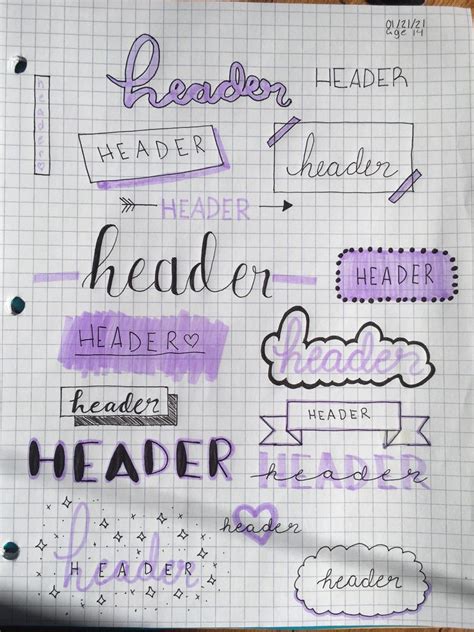 01/21/21
age 14
header
HEADER
header
HEADER
header
HEADER
header
HEADER
HEADER♡
header
header
HEADER
HEADER
HEADER
header
header
HEADER
header
header